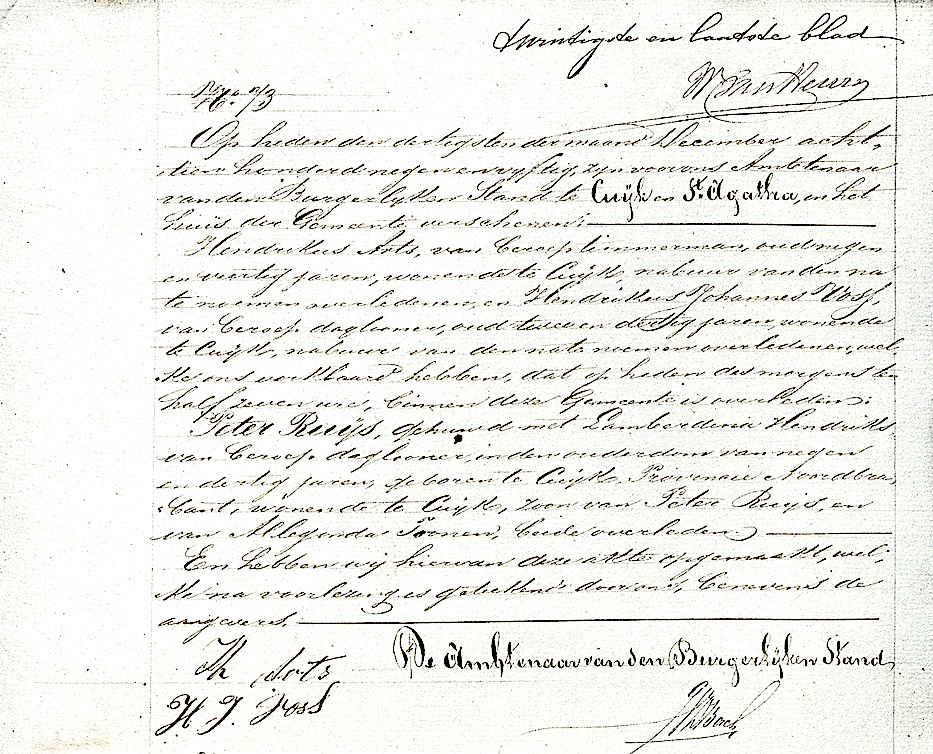 twintigste en laatste blad
No. 73
Op heden den dertigsten der maand December acht-
tien honderd negen en vyftig, zyn voor ons Ambtenaar
van den Burgerlyken Stand te Cuijk en St. Agatha, in het
huis der Gemeente verschenen:
Hendrikus Arts, van beroep timmerman, oud negen
en veertig jaren, wonende te Cuyk, nabuur van den na
te noemen overledenen, en Hendrikus Johannes Voss,
van beroep daglooner, oud twee en dertig jaren, wonende
te Cuyk, nabuur van den na te noemen overledenen, wel-
ke ons verklaard hebben, dat op heden des morgens te
half zeven ure, binnen deze Gemeente is overleden:
Peter Ruijs, gehuwd met Lamberdina Hendriks
van beroep daglooner, in den ouderdom van negen
en dertig jaren, geboren te Cuyk, Provincie Noordbra-
bant, wonende te Cuyk, zoon van Peter Ruijs, en
van Allegonda Toonen, beide overleden
En hebben wij hiervan deze akte opgemaakt, wel-
ke na voorlezing is geteekend door ons, benevens de
aangevers.
De Ambtenaar van den Burgerlyken Stand
Arts
H. J. Voss